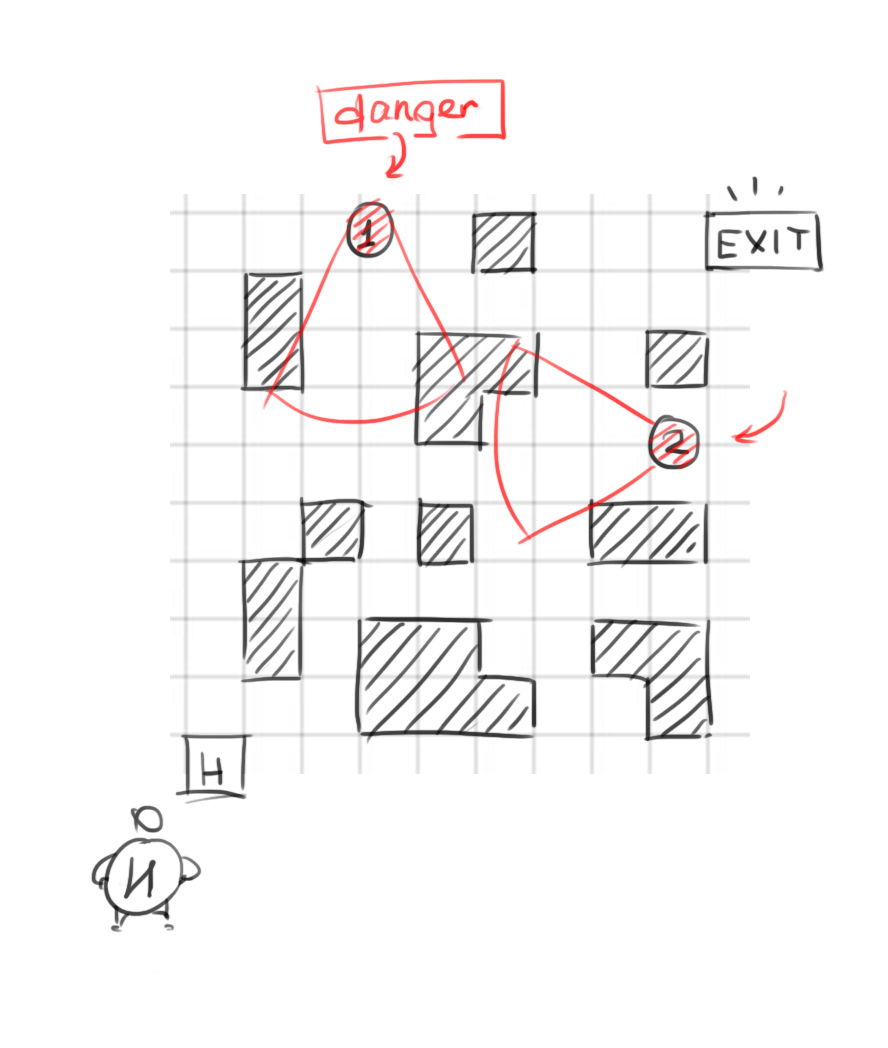 danger
1
EXIT
2
H
И